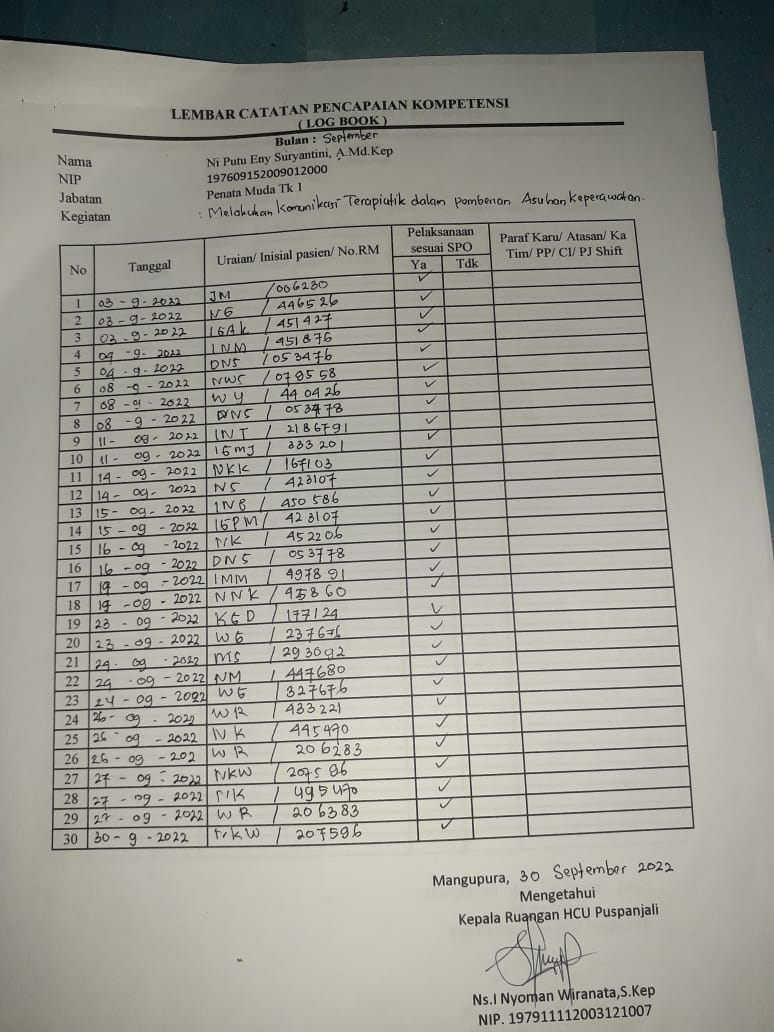 LEMBAR CATATAN PENCAPAIAN KOMPETENSI
( LOG BOOK )
Bulan : September
Nama Ni Putu Eny Suryantini, A.Md.Kep
NIP 197609152009012000
Jabatan Penata Muda Tk 1
Kegiatan : Melakukan Komunikasi Terapiutik dalam pemberian Asuhan Keperawatan.
No Tanggal Uraian/ Inisial pasien/ No.RM Pelaksanaan sesuai SPO Paraf Karu/ Atasan/ Ka Tim/ PP/ CI/ PJ Shift
Ya Tdk
1 03 - 9 - 2022 JM /006230 ✓
2 03 - 9 - 2022 NG / 446526 ✓
3 03 - 9 - 2022 IGAK / 451427 ✓
4 04 - 9 - 2022 INM / 451876 ✓
5 04 - 9 - 2022 DNS / 053476 ✓
6 08 - 9 - 2022 NWS / 078558 ✓
7 08 - 9 - 2022 WY / 440426 ✓
8 08 - 9 - 2022 DNS / 053478 ✓
9 11 - 09 - 2022 INT / 2186791 ✓
10 11 - 09 - 2022 IGMJ / 333201 ✓
11 14 - 09 - 2022 NKK / 167103 ✓
12 14 - 09 - 2022 NS / 423107 ✓
13 15 - 09 - 2022 INB / 450586 ✓
14 15 - 09 - 2022 IGPM / 423107 ✓
15 16 - 09 - 2022 NK / 452206 ✓
16 16 - 09 - 2022 DNS / 053778 ✓
17 19 - 09 - 2022 IMM / 497891 ✓
18 19 - 09 - 2022 NNK / 975860 ✓
19 23 - 09 - 2022 KED / 177124 ✓
20 23 - 09 - 2022 WG / 237676 ✓
21 24 - 09 - 2022 MS / 293092 ✓
22 24 - 09 - 2022 NM / 447680 ✓
23 24 - 09 - 2022 WG / 327676 ✓
24 26 - 09 - 2022 WR / 433221 ✓
25 26 - 09 - 2022 NK / 445470 ✓
26 26 - 09 - 202 WR / 206283 ✓
27 27 - 09 - 2022 NKW / 207586 ✓
28 27 - 09 - 2022 NK / 495470 ✓
29 27 - 09 - 2022 WR / 206383 ✓
30 30 - 9 - 2022 NKW / 207596 ✓
Mangupura, 30 September 2022
Mengetahui
Kepala Ruangan HCU Puspanjali
Ns.I Nyoman Wiranata,S.Kep
NIP. 197911112003121007